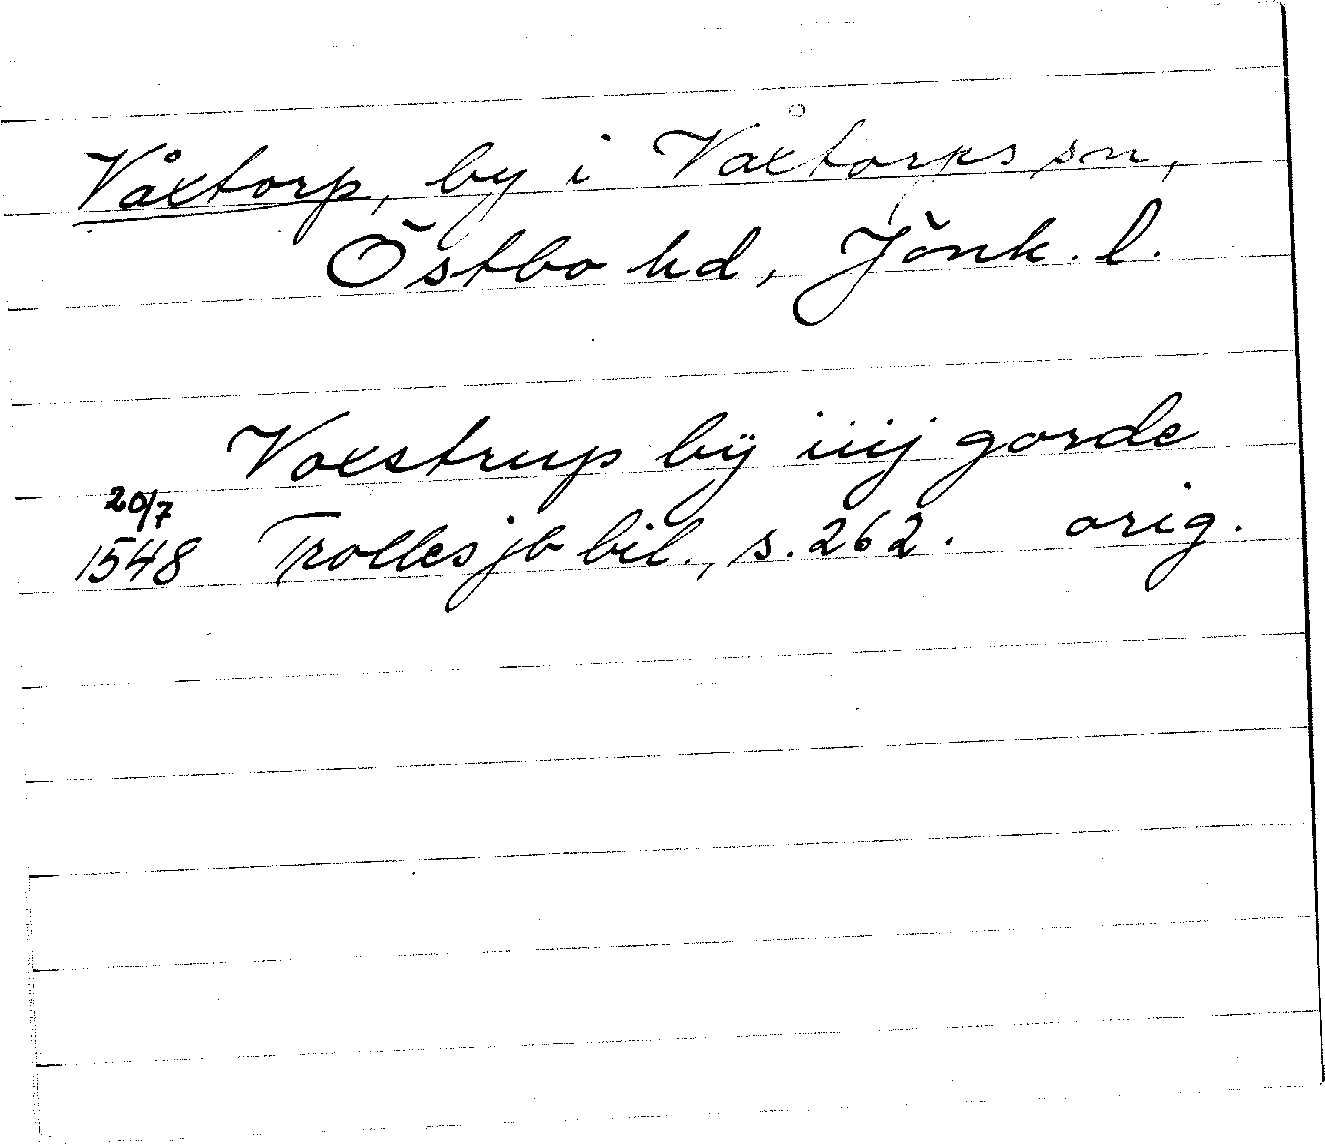 Våxtorp, by i Våxtorps sn,
Östbo hd, Jönk. l.
Voxstrup bÿ iiij gorde
20/7
1548 Trolles jb bil., s. 262. orig.